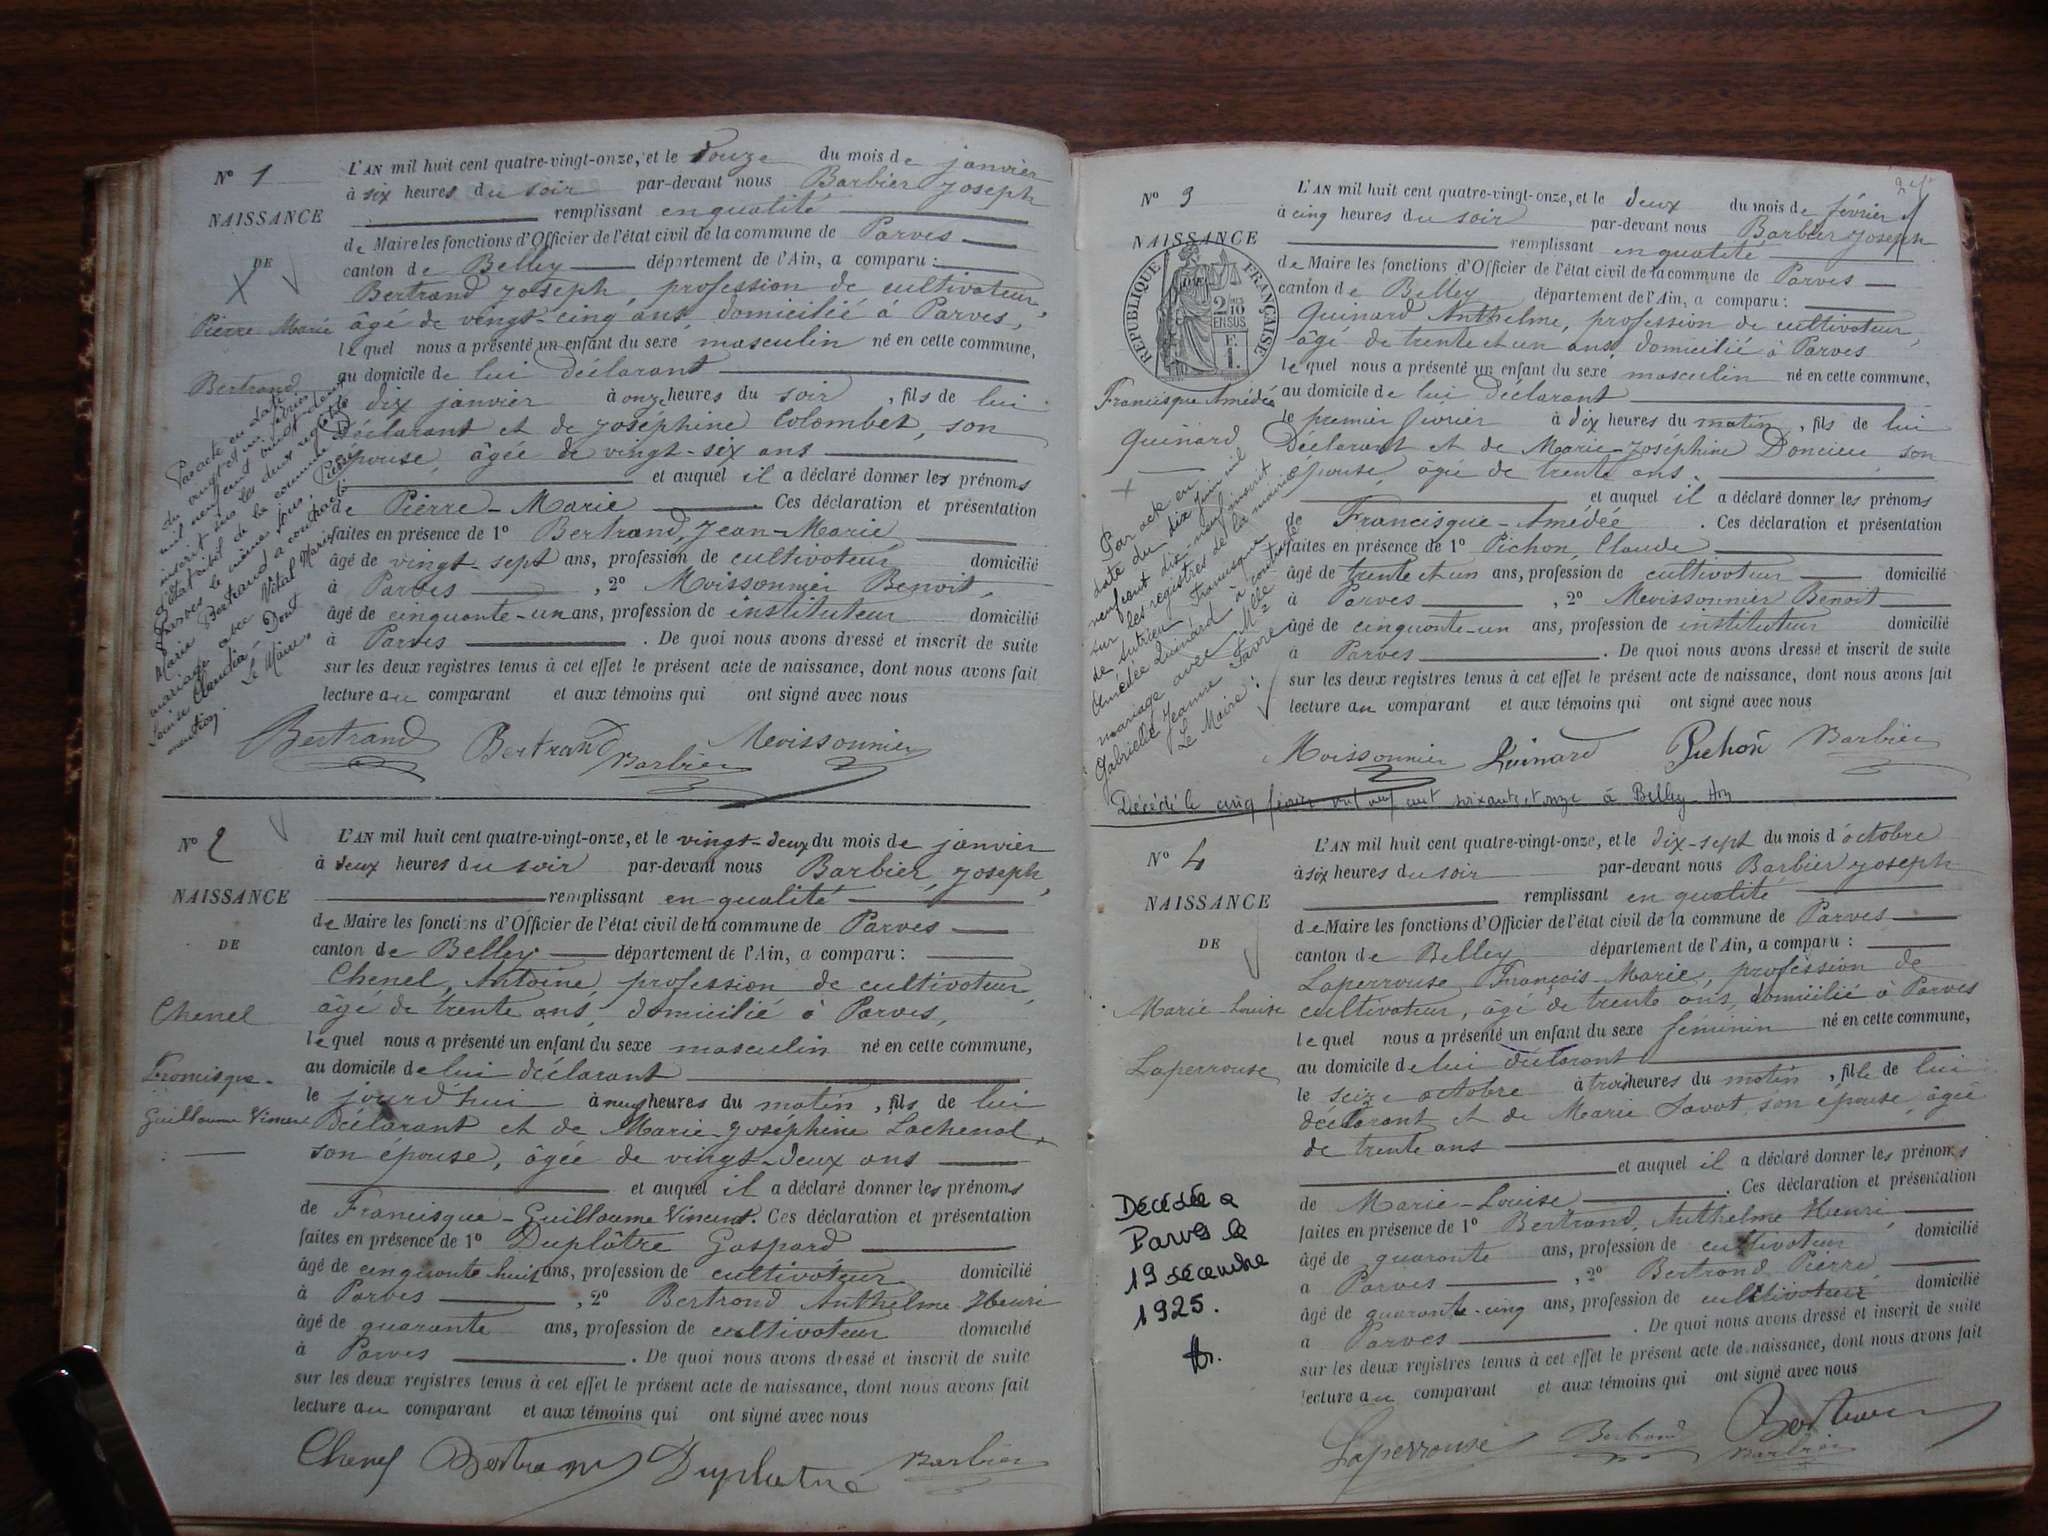 N° 1
NAISSANCE
DE
Pierre Marie
Bertrand
L'AN mil huit cent quatre-vingt-onze, et le douze du mois de janvier
à six heures du soir par-devant nous Barbier Joseph
remplissant en qualité
de Maire les fonctions d'Officier de l'état civil de la commune de Parves
canton de Belley département de l'Ain, a comparu :
Bertrand Joseph, profession de cultivateur,
âgé de vingt-cinq ans, domicilié à Parves,
lequel nous a présenté un enfant du sexe masculin né en cette commune,
au domicile de lui déclarant
dix janvier à onze heures du soir, fils de lui
déclarant et de Joséphine Colombet, son
épouse, âgée de vingt-six ans
et auquel il a déclaré donner les prénoms
de Pierre-Marie Ces déclaration et présentation
faites en présence de 1° Bertrand, Jean-Marie
âgé de vingt-sept ans, profession de cultivateur domicilié
à Parves, 2° Moissonnier Benoit,
âgé de cinquante-un ans, profession de instituteur domicilié
à Parves. De quoi nous avons dressé et inscrit de suite
sur les deux registres tenus à cet effet le présent acte de naissance, dont nous avons fait
lecture au comparant et aux témoins qui ont signé avec nous
Par acte en date
du vingt et un février
mil neuf cent vingt deux
inscrit sur les deux registres de
l'état civil de la commune de
Parves le même jour, Pierre
Marie Bertrand a contracté
mariage avec Vital Marie
Louise Claudia. Dont
mention. Le Maire.
Bertrand Bertrand Barbier Moissonnier
N° 2
NAISSANCE
DE
Chenel
Francisque-
Guillaume Vincent
L'AN mil huit cent quatre-vingt-onze, et le vingt-deux du mois de janvier
à deux heures du soir par-devant nous Barbier, Joseph,
remplissant en qualité
de Maire les fonctions d'Officier de l'état civil de la commune de Parves
canton de Belley département de l'Ain, a comparu :
Chenel, Antoine, profession de cultivateur,
âgé de trente ans, domicilié à Parves,
lequel nous a présenté un enfant du sexe masculin né en cette commune,
au domicile de lui déclarant
le jourd'hui à neuf heures du matin, fils de lui
déclarant et de Marie-Joséphine Lachenal,
son épouse, âgée de vingt-deux ans
et auquel il a déclaré donner les prénoms
de Francisque-Guillaume Vincent. Ces déclaration et présentation
faites en présence de 1° Duplâtre Gaspard
âgé de cinquante huit ans, profession de cultivateur domicilié
à Parves, 2° Bertrand Anthelme Henri
âgé de quarante ans, profession de cultivateur domicilié
à Parves. De quoi nous avons dressé et inscrit de suite
sur les deux registres tenus à cet effet le présent acte de naissance, dont nous avons fait
lecture au comparant et aux témoins qui ont signé avec nous
Chenel Bertrand Duplatre Barbier
N° 3
NAISSANCE
DE
RÉPUBLIQUE FRANÇAISE
2/10 EN SUS
F. 1.
Francisque Amédée
Quinard
L'AN mil huit cent quatre-vingt-onze, et le deux du mois de février
à cinq heures du soir par-devant nous Barbier Joseph
remplissant en qualité
de Maire les fonctions d'Officier de l'état civil de la commune de Parves
canton de Belley département de l'Ain, a comparu :
Quinard Anthelme, profession de cultivateur,
âgé de trente et un ans, domicilié à Parves
lequel nous a présenté un enfant du sexe masculin né en cette commune,
au domicile de lui déclarant
le premier février à dix heures du matin, fils de lui
déclarant et de Marie-Joséphine Doncieu, son
épouse, âgée de trente ans.
et auquel il a déclaré donner les prénoms
de Francisque-Amédée. Ces déclaration et présentation
faites en présence de 1° Pichon, Claude
âgé de trente et un ans, profession de cultivateur domicilié
à Parves, 2° Moissonnier Benoit
âgé de cinquante-un ans, profession de instituteur domicilié
à Parves. De quoi nous avons dressé et inscrit de suite
sur les deux registres tenus à cet effet le présent acte de naissance, dont nous avons fait
lecture au comparant et aux témoins qui ont signé avec nous
Par acte en
date du dix juin mil
neuf cent dix-neuf inscrit
sur les registres de la mairie
de Francisque
Amédée Quinard a contracté
mariage avec Mlle
Gabrielle Jeanne Favre
Le Maire :
Moissonnier Quinard Pichon Barbier
Décédé le cinq février mil neuf cent soixante et onze à Belley - Ain
N° 4
NAISSANCE
DE
Marie-Louise
Laperrouse
L'AN mil huit cent quatre-vingt-onze, et le dix-sept du mois d'octobre
à six heures du soir par-devant nous Barbier Joseph
remplissant en qualité
de Maire les fonctions d'Officier de l'état civil de la commune de Parves
canton de Belley département de l'Ain, a comparu :
Laperrouse François-Marie, profession de
cultivateur, âgé de trente ans, domicilié à Parves
lequel nous a présenté un enfant du sexe féminin né en cette commune,
au domicile de lui déclarant
le seize octobre à trois heures du matin, fille de lui
déclarant et de Marie Savot, son épouse, âgée
de trente ans
et auquel il a déclaré donner les prénoms
de Marie-Louise. Ces déclaration et présentation
faites en présence de 1° Bertrand, Anthelme Henri,
âgé de quarante ans, profession de cultivateur domicilié
à Parves, 2° Bertrand Pierre
âgé de quarante-cinq ans, profession de cultivateur domicilié
à Parves. De quoi nous avons dressé et inscrit de suite
sur les deux registres tenus à cet effet le présent acte de naissance, dont nous avons fait
lecture au comparant et aux témoins qui ont signé avec nous
Décédée à
Parves le
19 décembre
1925.
Laperrouse Bertrand Bertrand Barbier